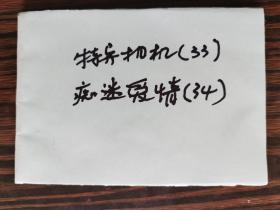 特异切机(33)
痴迷爱情(34)